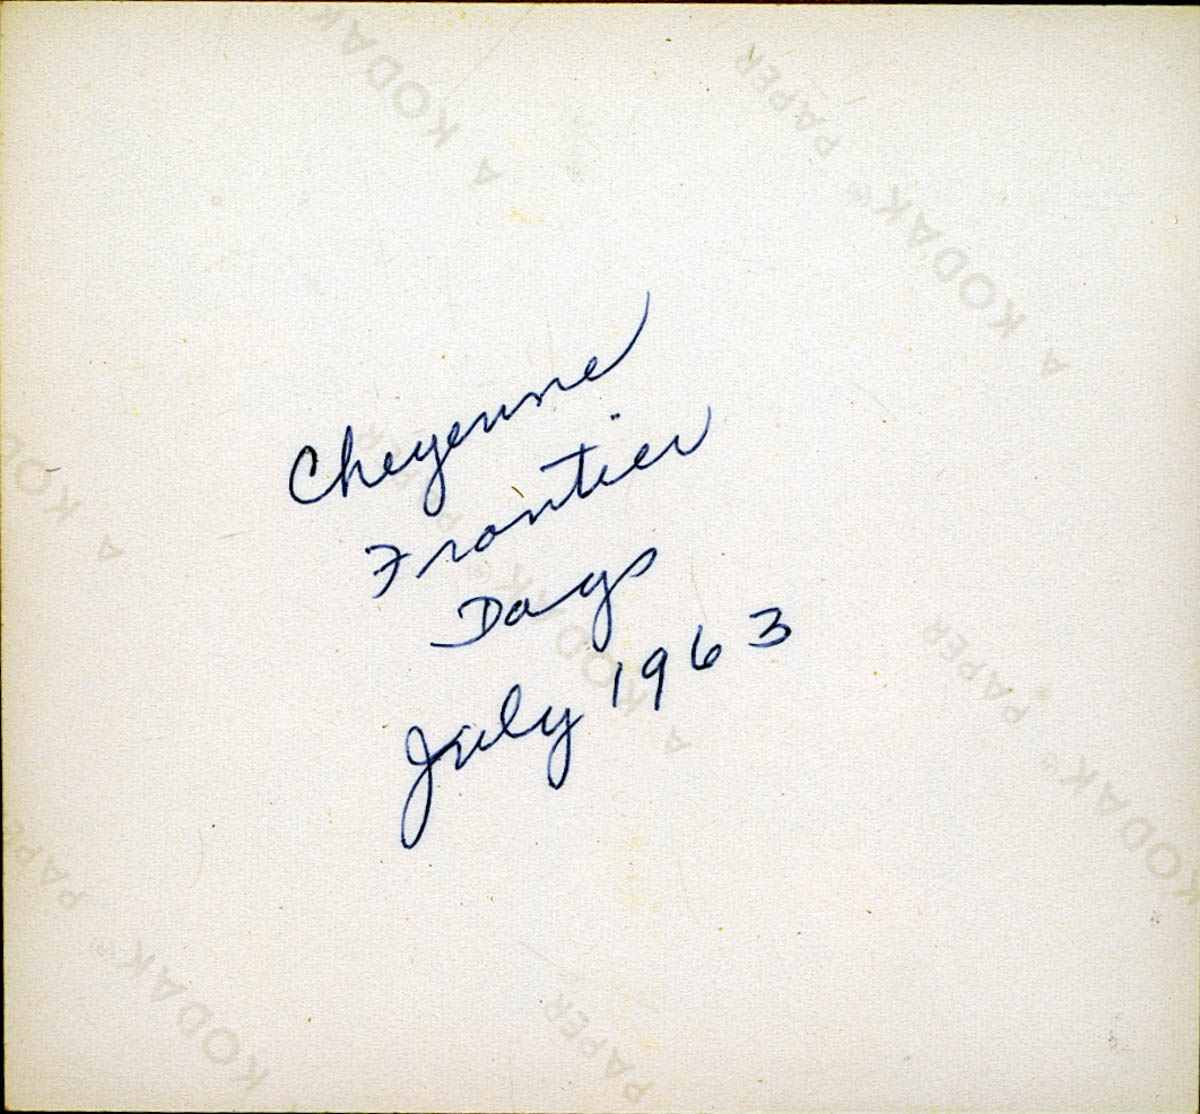 Cheyenne
Frontier
Days
July 1963
A KODAK
PAPER
A KODAK®
PAPER
A KODAK®
A KOD
PAPER
KODAK®
PAPE
KODAK®
PAPER